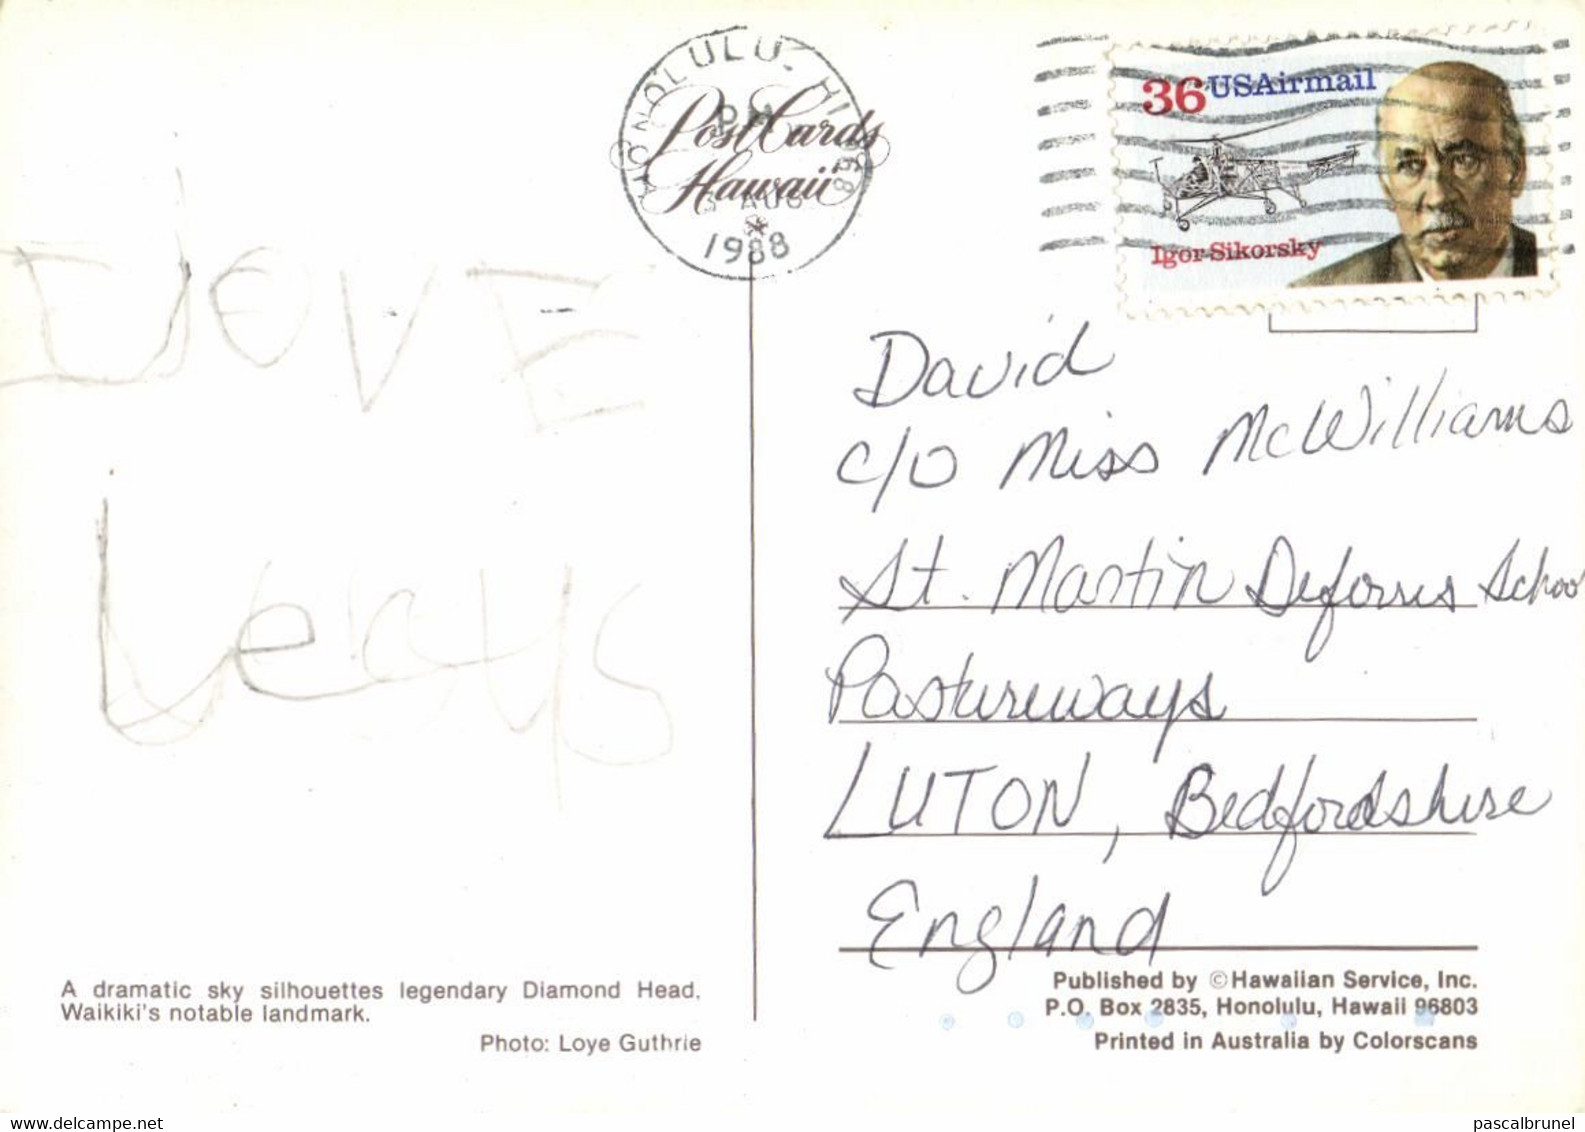 HONOLULU, HI 968
PM
AUG
1988
PostCards
Hawaii
36 USAirmail
Igor Sikorsky
LOVE
David
c/o Miss McWilliams
St. Martin Deforris School
Pastureways
LUTON, Bedfordshire
England
A dramatic sky silhouettes legendary Diamond Head,
Waikiki's notable landmark.
Photo: Loye Guthrie
Published by ©Hawaiian Service, Inc.
P.O. Box 2835, Honolulu, Hawaii 96803
Printed in Australia by Colorscans
www.delcampe.net
pascalbrunel